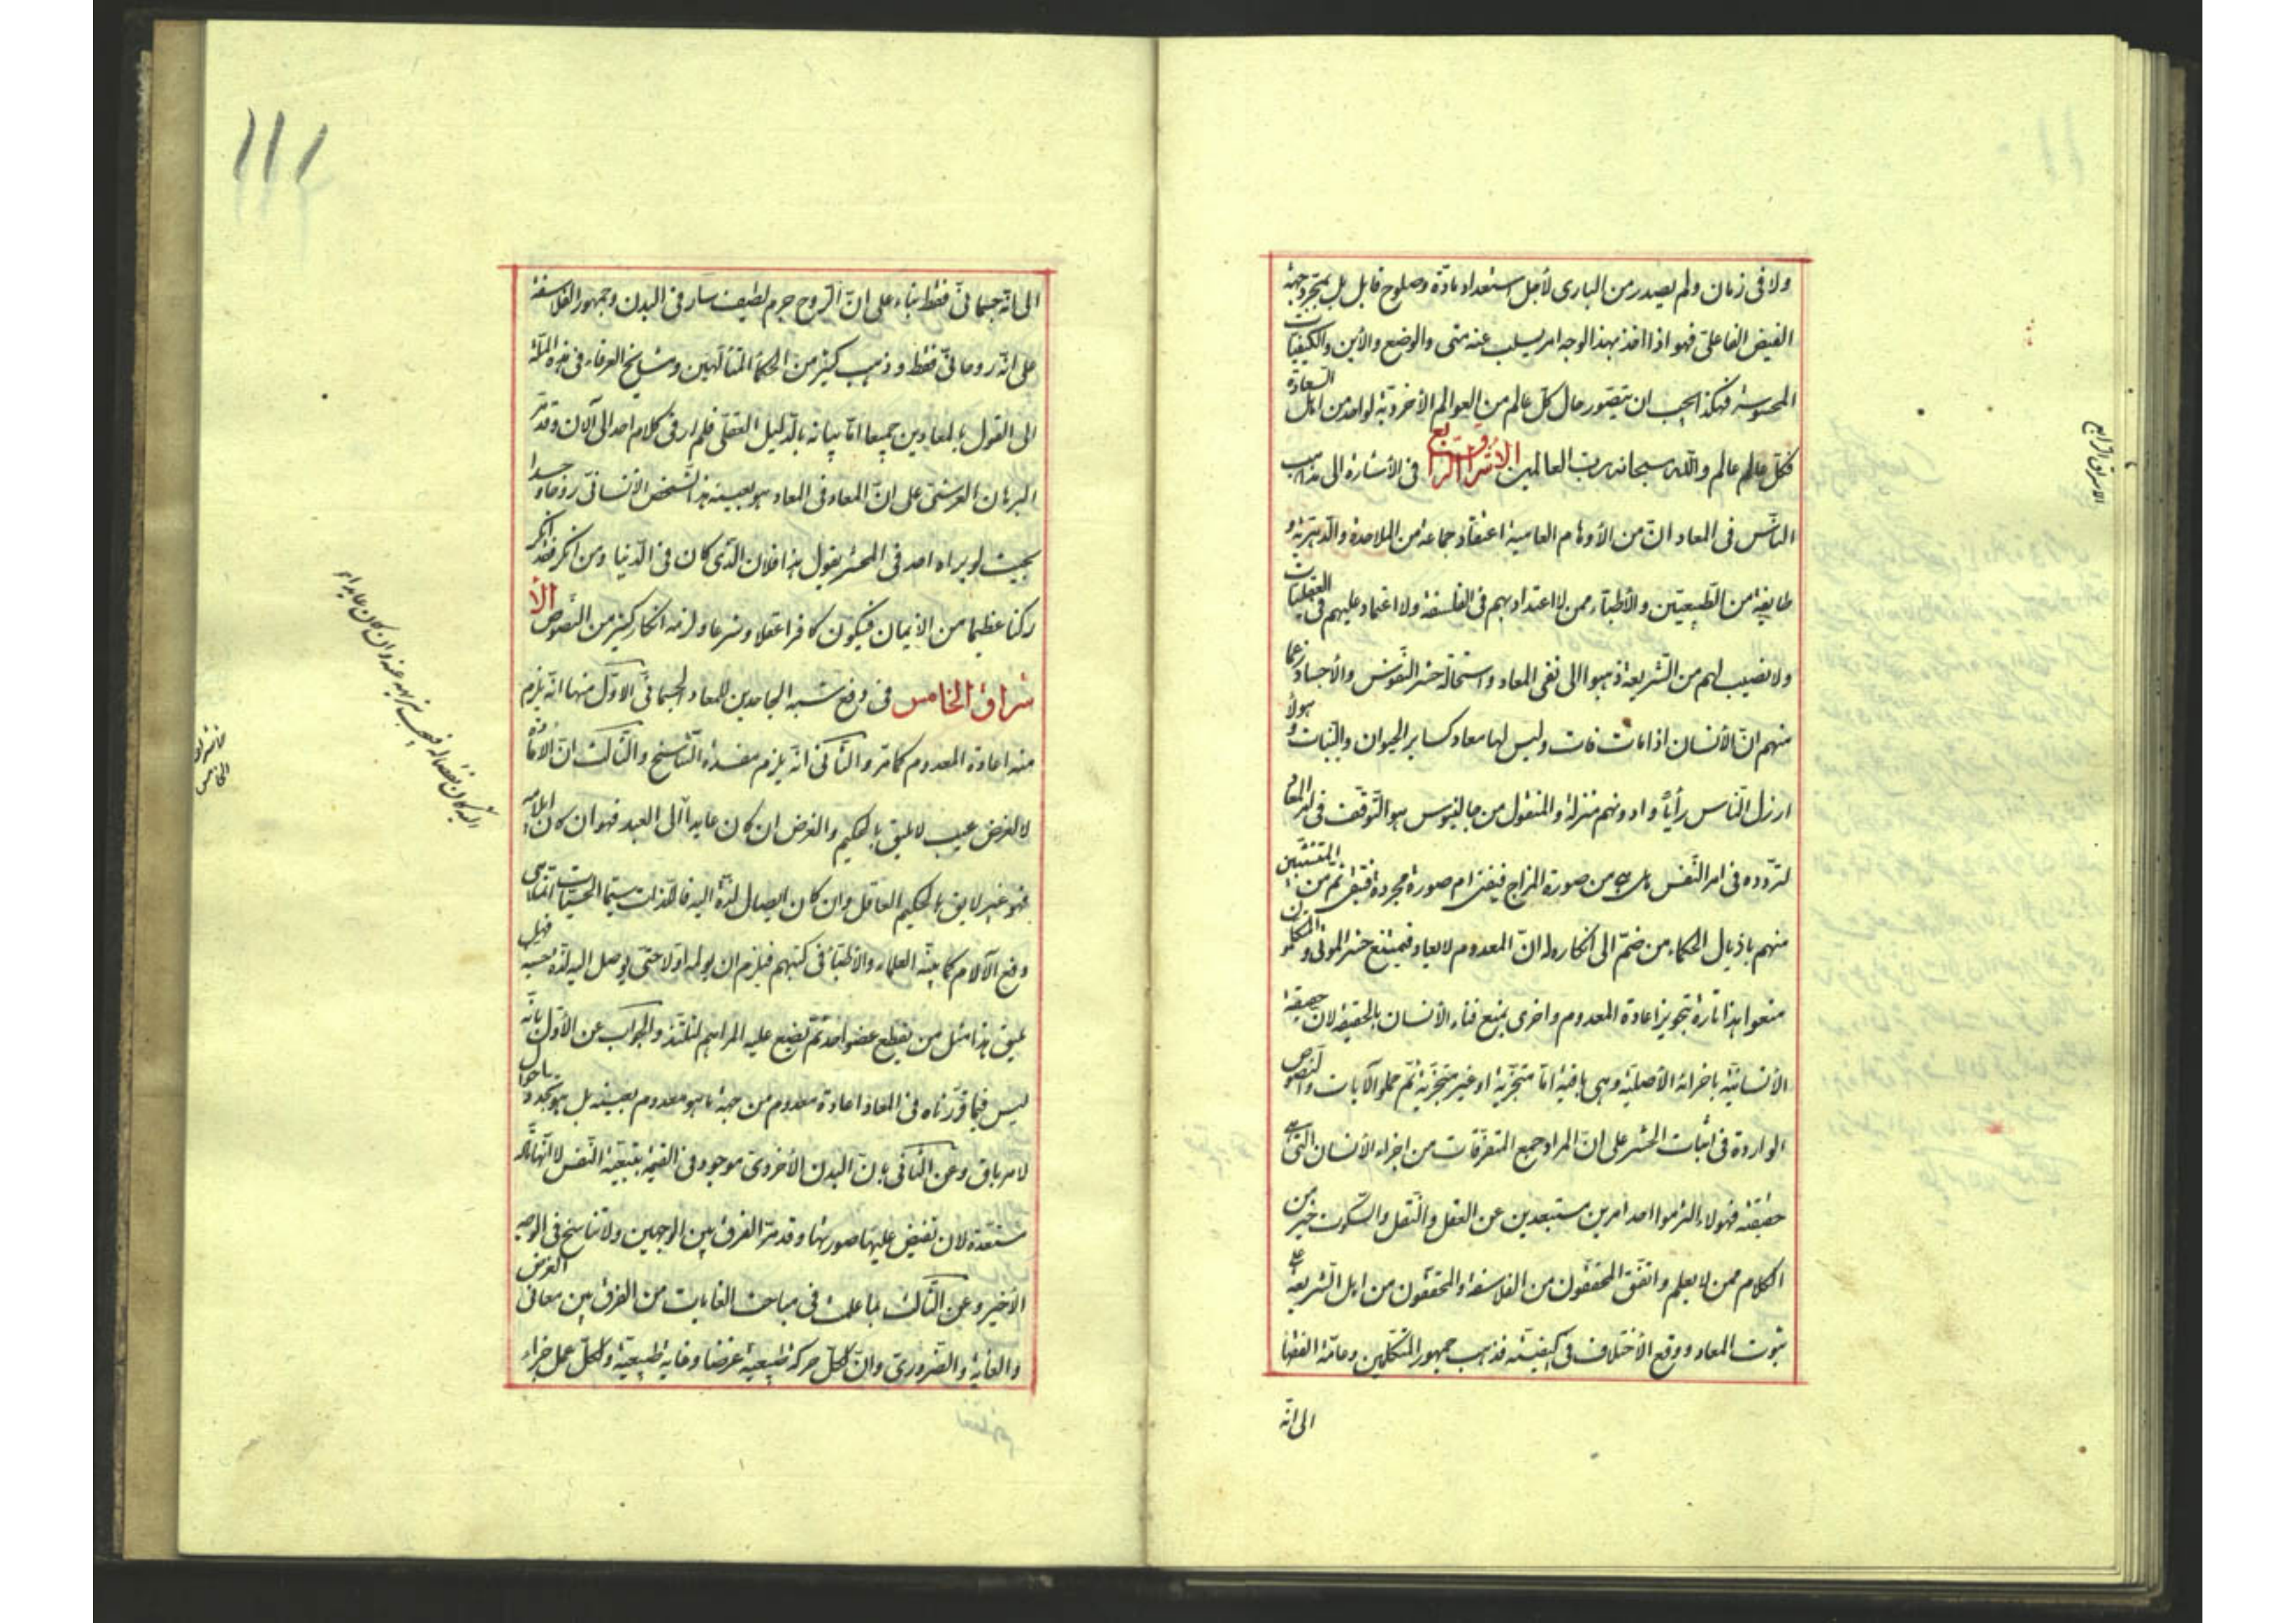 ولا فى زمان ولم يصدر من البارى لأجل استعداد مادّة وصلوح قابل بل بمجرد جهة
الفيض الفاعلى فهو اذا اخذ بهذا الوجه امر يسلب عنه متى والوضع والأين والكيفيات
المحسوسة فهكذا يجب ان يتصور حال كل عالم من العوالم الأخروية لواحد من اهل السعادة
فكل عالم عالم والله سبحانه رب العالمين الاشراق الرابع فى الأشارة الى مذاهب
الناس فى المعاد انّ من الأوهام العامية اعتقاد جماعة من الملاحدة والدهرية و
طايفة من الطبيعيين والأطباء ممن لا اعتداد بهم فى الفلسفة ولا اعتماد عليهم فى العقليات
ولا نصيب لهم من الشريعة ذهبوا الى نفى المعاد واستحالة حشر النفوس والأجساد زعما
منهم انّ الأنسان اذا مات فات وليس لها معاد كساير الحيوان والنبات وهولاء
ارذل الناس رأياً وادونهم منزلة والمنقول من جالينوس هو التوقف فى امر المعاد
لتردده فى امر النفس هل هى من صورة المزاج فيفنى ام صورة مجردة فتبقى ثم من المتشبثين
منهم باذيال الحكماء من ضمّ الى انكاره له انّ المعدوم لا يعاد فيمتنع حشر الموتى والمتكلمون
منعوا هذا تارة بتجويز اعادة المعدوم واخرى بمنع فناء الأنسان بالحقيقة لان حقيقة
الأنسانية باجزائه الأصلية وهى باقية امّا متجزية او غير متجزية ثم حملوا الآيات والنصوص
الواردة فى اثبات الحشر على انّ المراد جمع المتفرقات من اجزاء الأنسان التى هى
حقيقته فهولاء التزموا احد امرين مستبعدين عن العقل والنقل والسكوت خير من
الكلام ممن لا يعلم واتفق المحققون من الفلاسفة والمحققون من اهل الشريعة على
ثبوت المعاد ووقع الأختلاف فى كيفيته فذهب جمهور المتكلمين وعامة الفقها
الى انّه
الاشراق الرابع
١١١
الى انّه جسمانىّ فقط بناء على انّ الروح جرم لطيف سار فى البدن وجمهور الفلاسفة
على انّه روحانىّ فقط وذهب كثير من الحكما المتألهين ومشايخ العرفاء فى هذه الملّة
الى القول بالمعادين جميعا امّا بيانه بالدليل العقلى فلم ار فى كلام احد الى الآن وقد مرّ
البرهان العرشى على انّ المعاد فى المعاد هو بعينه هذا الشخص الأنسانى روحا وجسدا
بحيث لو يراه احد فى المحشر يقول هذا فلان الذى كان فى الدنيا ومن انكر فقد انكر
ركنا عظيما من الأيمان فيكون كافرا عقلا وشرعا ولزمه انكار كثير من النصوص الأ
شراق الخامس فى دفع شبه الجاحدين للمعاد الجسمانىّ الاوّل منها انّه يلزم
منه اعادة المعدوم كما مر والثانى انه يلزم مفسدة التناسخ والثالث انّ الاعادة
لا لغرض عيب لا يليق بالحكيم والغرض ان كان عايدا الى العبد فهو ان كان ايلامه
فهو غير لايق بالحكيم العاقل وان كان ايصال لذة اليه فاللذات سيما الحسيات انما هى
دفع الآلام كما بينه العلماء والأطباء فى كتبهم فيلزم ان يولمه اولا حتى يوصل اليه لذة حسية فهل
يليق هذا مثل من يقطع عضو احد ثم يضع عليه المراهم ليلتذ والجواب عن الأول بانه
ليس فيما قررناه فى المعاد اعادة معدوم من جهة ما هو معدوم بعينه بل هو تجدد احوال
لامر باق وعن الثانى بانّ البدن الأخروى موجود فى القيمة بتبعية النفس لا انّها مادّة
مستعدة لان تفيض عليها صورتها وقد مرّ الفرق بين الوجهين ولا تناسخ فى الوجه
الأخير وعن الثالث بما علمت فى مباحث الغايات من الفرق بين معانى الغرض
والغاية والضرورى وان لكل حركة طبيعية غرضا وغاية طبيعية ولكل عمل جزاء